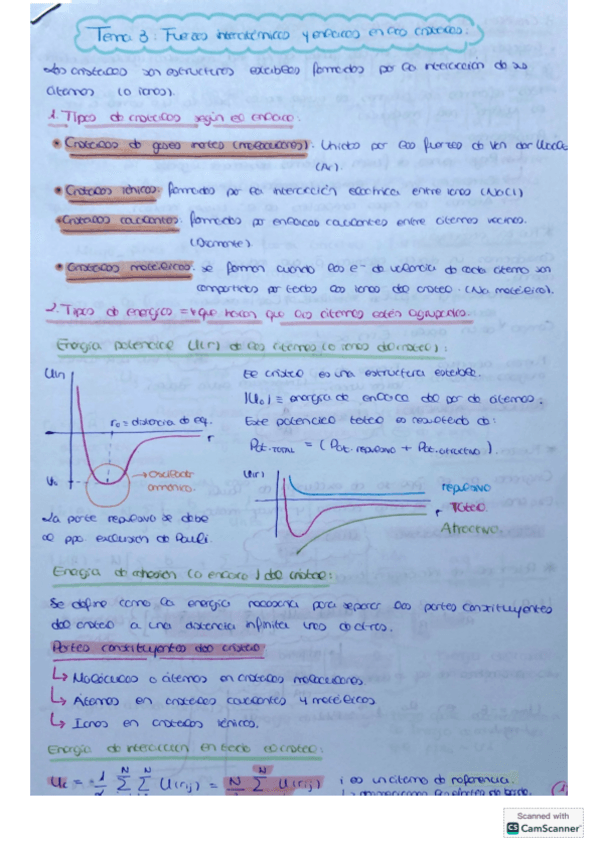 Tema 3: Fuerzas interatómicas y enlaces en los cristales.
Los cristales son estructuras estables formados por la interacción de sus
átomos (o iones).
1. Tipos de cristales según el enlace.
• Cristales de gases inertes (moleculares). Unidos por las fuerzas de Van der Waals
(Ar).
• Cristales iónicos: formados por la interacción eléctrica entre iones (NaCl)
• Cristales covalentes: formados por enlaces covalentes entre átomos vecinos.
(Diamante).
• Cristales metálicos: se forman cuando los e- de valencia de cada átomo son
compartidos por todos los iones del cristal. (Na metálico).
2. Tipos de energías = que hacen que los átomos estén agrupados.
Energía potencial U(r) de los átomos (o iones del cristal):
U(r)
r₀ = distancia de eq.
r
U₀
→ Oscilador
armónico.
La parte repulsiva se debe
al ppo exclusión de Pauli.
El cristal es una estructura estable.
|U₀| ≡ energía de enlace del par de átomos.
Este potencial total es resultado de:
Pot. TOTAL = (Pot. repulsivo + Pot. atractivo).
U(r)
r
repulsivo
Total.
Atractivo.
Energía de cohesión (o enlace) del cristal:
Se define como la energía necesaria para separar las partes constituyentes
del cristal a una distancia infinita unos de otros.
Partes constituyentes del cristal:
↳ Moléculas o átomos en cristales moleculares.
↳ Átomos en cristales covalentes y metálicos
↳ Iones en cristales iónicos.
Energía de interacción en todo el cristal:
= 1/2 N∑ N∑ U(rij) = N/2 N∑ U(rij) i es un átomo de referencia.
Scanned with
CS CamScanner